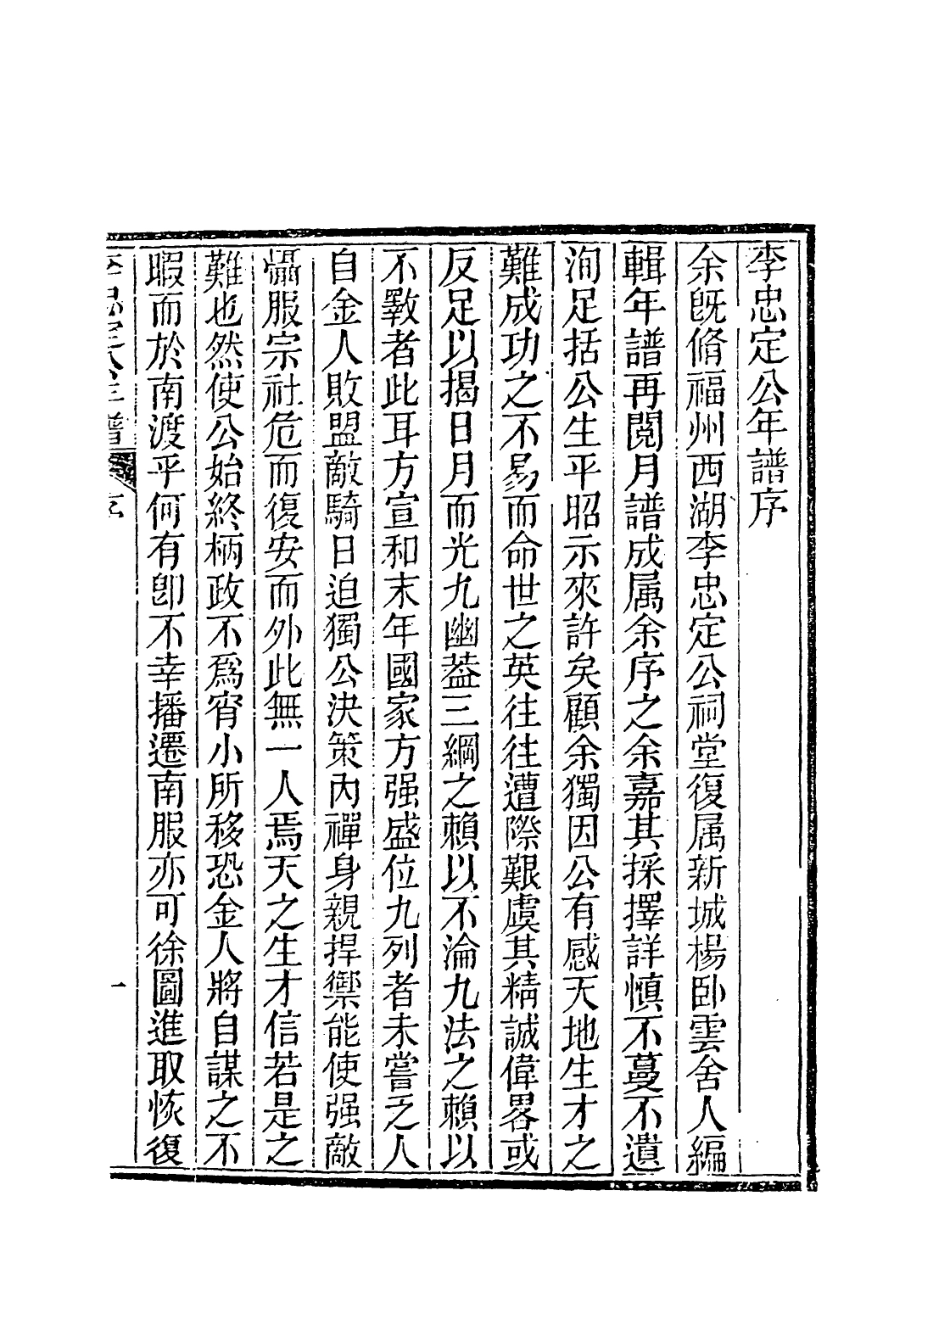 李忠定公年譜序
余旣脩福州西湖李忠定公祠堂復属新城楊卧雲舍人編
輯年譜再閱月譜成属余序之余嘉其採擇詳慎不蔓不遺
洵足括公生平昭示來許矣顧余獨因公有感天地生才之
難成功之不易而命世之英往往遭際艱虞其精誠偉畧或
反足以揭日月而光九幽葢三綱之賴以不淪九法之賴以
不斁者此耳方宣和末年國家方强盛位九列者未嘗乏人
自金人敗盟敵騎日迫獨公決策內禪身親捍禦能使强敵
懾服宗社危而復安而外此無一人焉天之生才信若是之
難也然使公始終柄政不爲宵小所移恐金人將自謀之不
暇而於南渡乎何有卽不幸播遷南服亦可徐圖進取恢復
李忠定公年譜 序 一